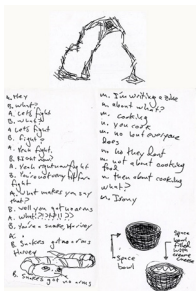 A. Hey
B. what?
A. Let's fight
B. what?
A. Let's fight
B. fight?
A. Yeah fight.
B. Right now?
A. Yeah right now fight
B. You're not very fit for
fight.
A. What makes you say
that?
B. well you got no arms
A. What?
B. You're a snake, Harvey
A.
B. Snakes got no arms
Harvey
B. Snakes got no arms
m. I'm writing a
m. about what?
m. cooking
m. you cook
m. no but everyone
does
n. no they dont
m. not about cooking
food
n. then about cooking
what?
m. Irony
space
bowl
space
bowl
filled
with
cream
cheese